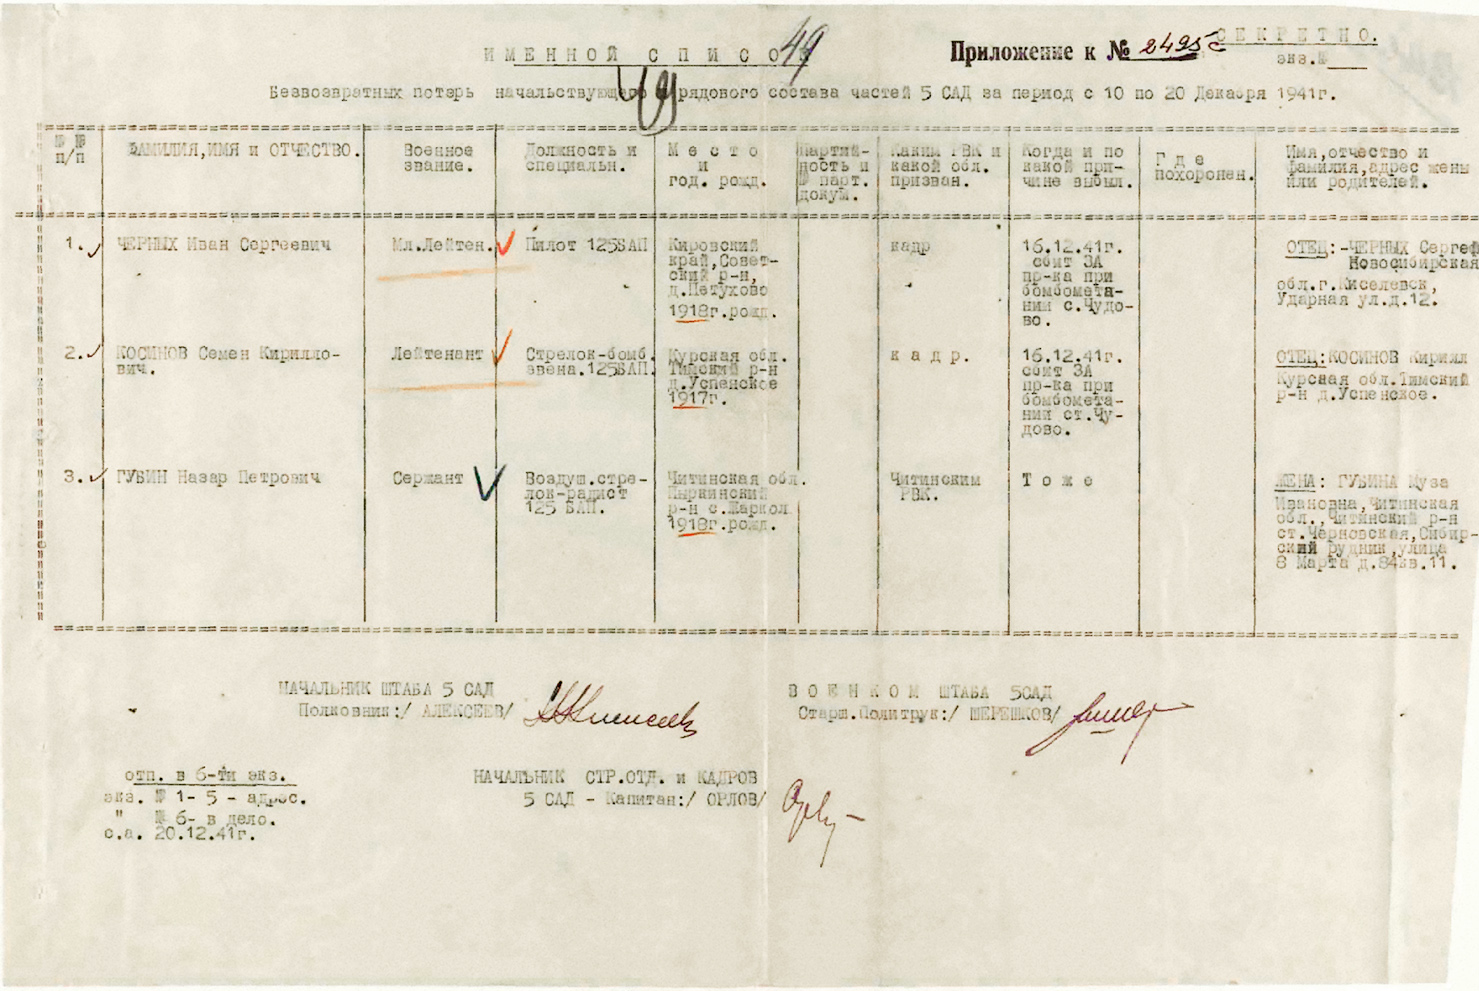 СЕКРЕТНО.
Приложение к № 2495с
экз.№
ИМЕННОЙ СПИСОК
49
49
Безвозвратных потерь начальствующего рядового состава частей 5 САД за период с 10 по 20 Декабря 1941г.
№ № п/п
ФАМИЛИЯ,ИМЯ и ОТЧЕСТВО.
Военное
звание.
Должность и
специальн.
Место
и
год. рожд.
Партий-
ность и
№ парт.
докум.
Каким РВК и
какой обл.
призван.
Когда и по
какой при-
чине выбыл.
Где
похоронен.
Имя,отчество и
фамилия,адрес жены
или родителей.
1.
ЧЕРНЫХ Иван Сергеевич
Мл.Лейтен.
Пилот 125БАП
Кировский
край,Совет-
ский р-н,
д.Петухово
1918г.рожд.
кадр
16.12.41г.
сбит ЗА
пр-ка при
бомбомета-
нии с.Чудо-
во.
ОТЕЦ:-ЧЕРНЫХ Сергей
Новосибирская
обл.г.Киселевск,
Ударная ул.д.12.
2.
КОСИНОВ Семен Кирилло-
вич.
Лейтенант
Стрелок-бомб.
звена.125БАП.
Курская обл.
Тимский р-н
д.Успенское
1917г.
кадр.
16.12.41г.
сбит ЗА
пр-ка при
бомбомета-
нии ст.Чу-
дово.
ОТЕЦ:КОСИНОВ Кирилл
Курская обл.Тимский
р-н д.Успенское.
3.
ГУБИН Назар Петрович
Сержант
Воздуш.стре-
лок-радист
125 БАП.
Читинская обл.
Пыркинский
р-н с.Жаркол
1918г.рожд.
Читинским
РВК.
Тоже
ЖЕНА: ГУБИНА Муза
Ивановна,Читинская
обл.,Читинский р-н
ст.Черновская,Сибир-
ский рудник,улица
8 Марта д.84кв.11.
НАЧАЛЬНИК ШТАБА 5 САД
Полковник:/ АЛЕКСЕЕВ/
ВОЕНКОМ ШТАБА 5САД
Старш.Политрук:/ ШЕРЕШКОВ/
НАЧАЛЬНИК СТР.ОТД. и КАДРОВ
5 САД - Капитан:/ ОРЛОВ/
отп. в 6-ти экз.
экз. № 1- 5 - адрес.
" № 6- в дело.
с.а. 20.12.41г.